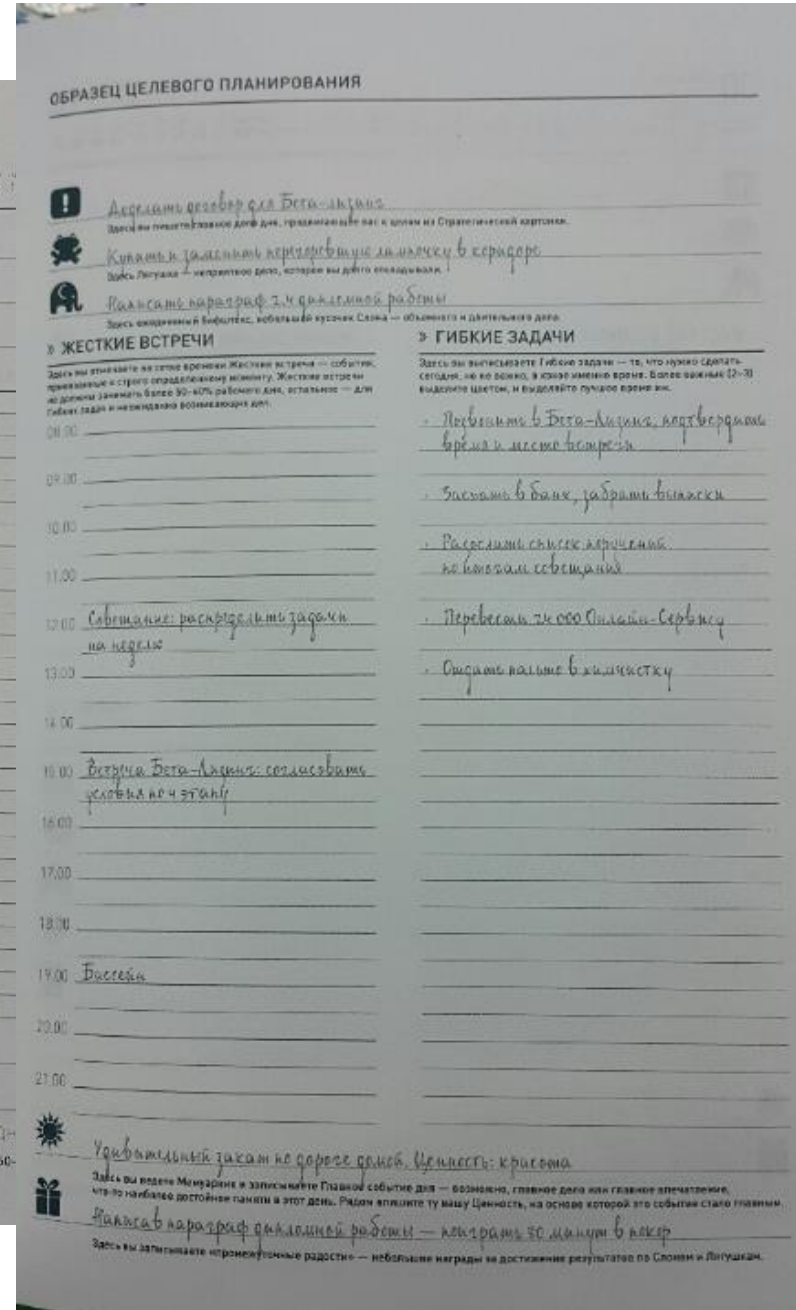 ОБРАЗЕЦ ЦЕЛЕВОГО ПЛАНИРОВАНИЯ
Доделать договор для Бета-лизинг
Здесь вы пишете главное дело дня, продвигающее вас к целям из Стратегической картонки.
Купить и заменить перегоревшую лампочку в коридоре
Здесь Лягушка — неприятное дело, которое вы долго откладывали.
Написать параграф 2.4 дипломной работы
Здесь ежедневный бифштекс, небольшой кусочек Слона — объемного и длительного дела.
» ЖЕСТКИЕ ВСТРЕЧИ
Здесь вы отмечаете на сетке времени Жесткие встречи — события,
привязанные к строго определенному моменту. Жесткие встречи
не должны занимать более 50–60% рабочего дня, остальное — для
Гибких задач и неожиданно возникающих дел.
08.00
09.00
10.00
11.00
12.00 Совещание: распределить задачи
на неделю
13.00
14.00
15.00 Встреча Бета-Лизинг: согласовать
условия по 4 этапу
16.00
17.00
18.00
19.00 Бассейн
20.00
21.00
» ГИБКИЕ ЗАДАЧИ
Здесь вы выписываете Гибкие задачи — то, что нужно сделать
сегодня, но не важно, в какое именно время. Более важные (2–3)
выделите цветом, и выделяйте лучшее время им.
· Позвонить в Бета-Лизинг, подтвердить
время и место встречи
· Заехать в банк, забрать выписки
· Разослать список поручений
по итогам совещания
· Перевести 24 000 Онлайн-Сервису
· Отдать пальто в химчистку
Удивительный закат по дороге домой. Ценность: красота
Здесь вы ведете Мемуарник и записываете Главное событие дня — возможно, главное дело или главное впечатление,
что-то наиболее достойное памяти в этот день. Рядом впишите ту вашу Ценность, на основе которой это событие стало главным.
Написав параграф дипломной работы — поиграть 30 минут в покер
Здесь вы записываете «промежуточные радости» — небольшие награды за достижение результатов по Слонам и Лягушкам.